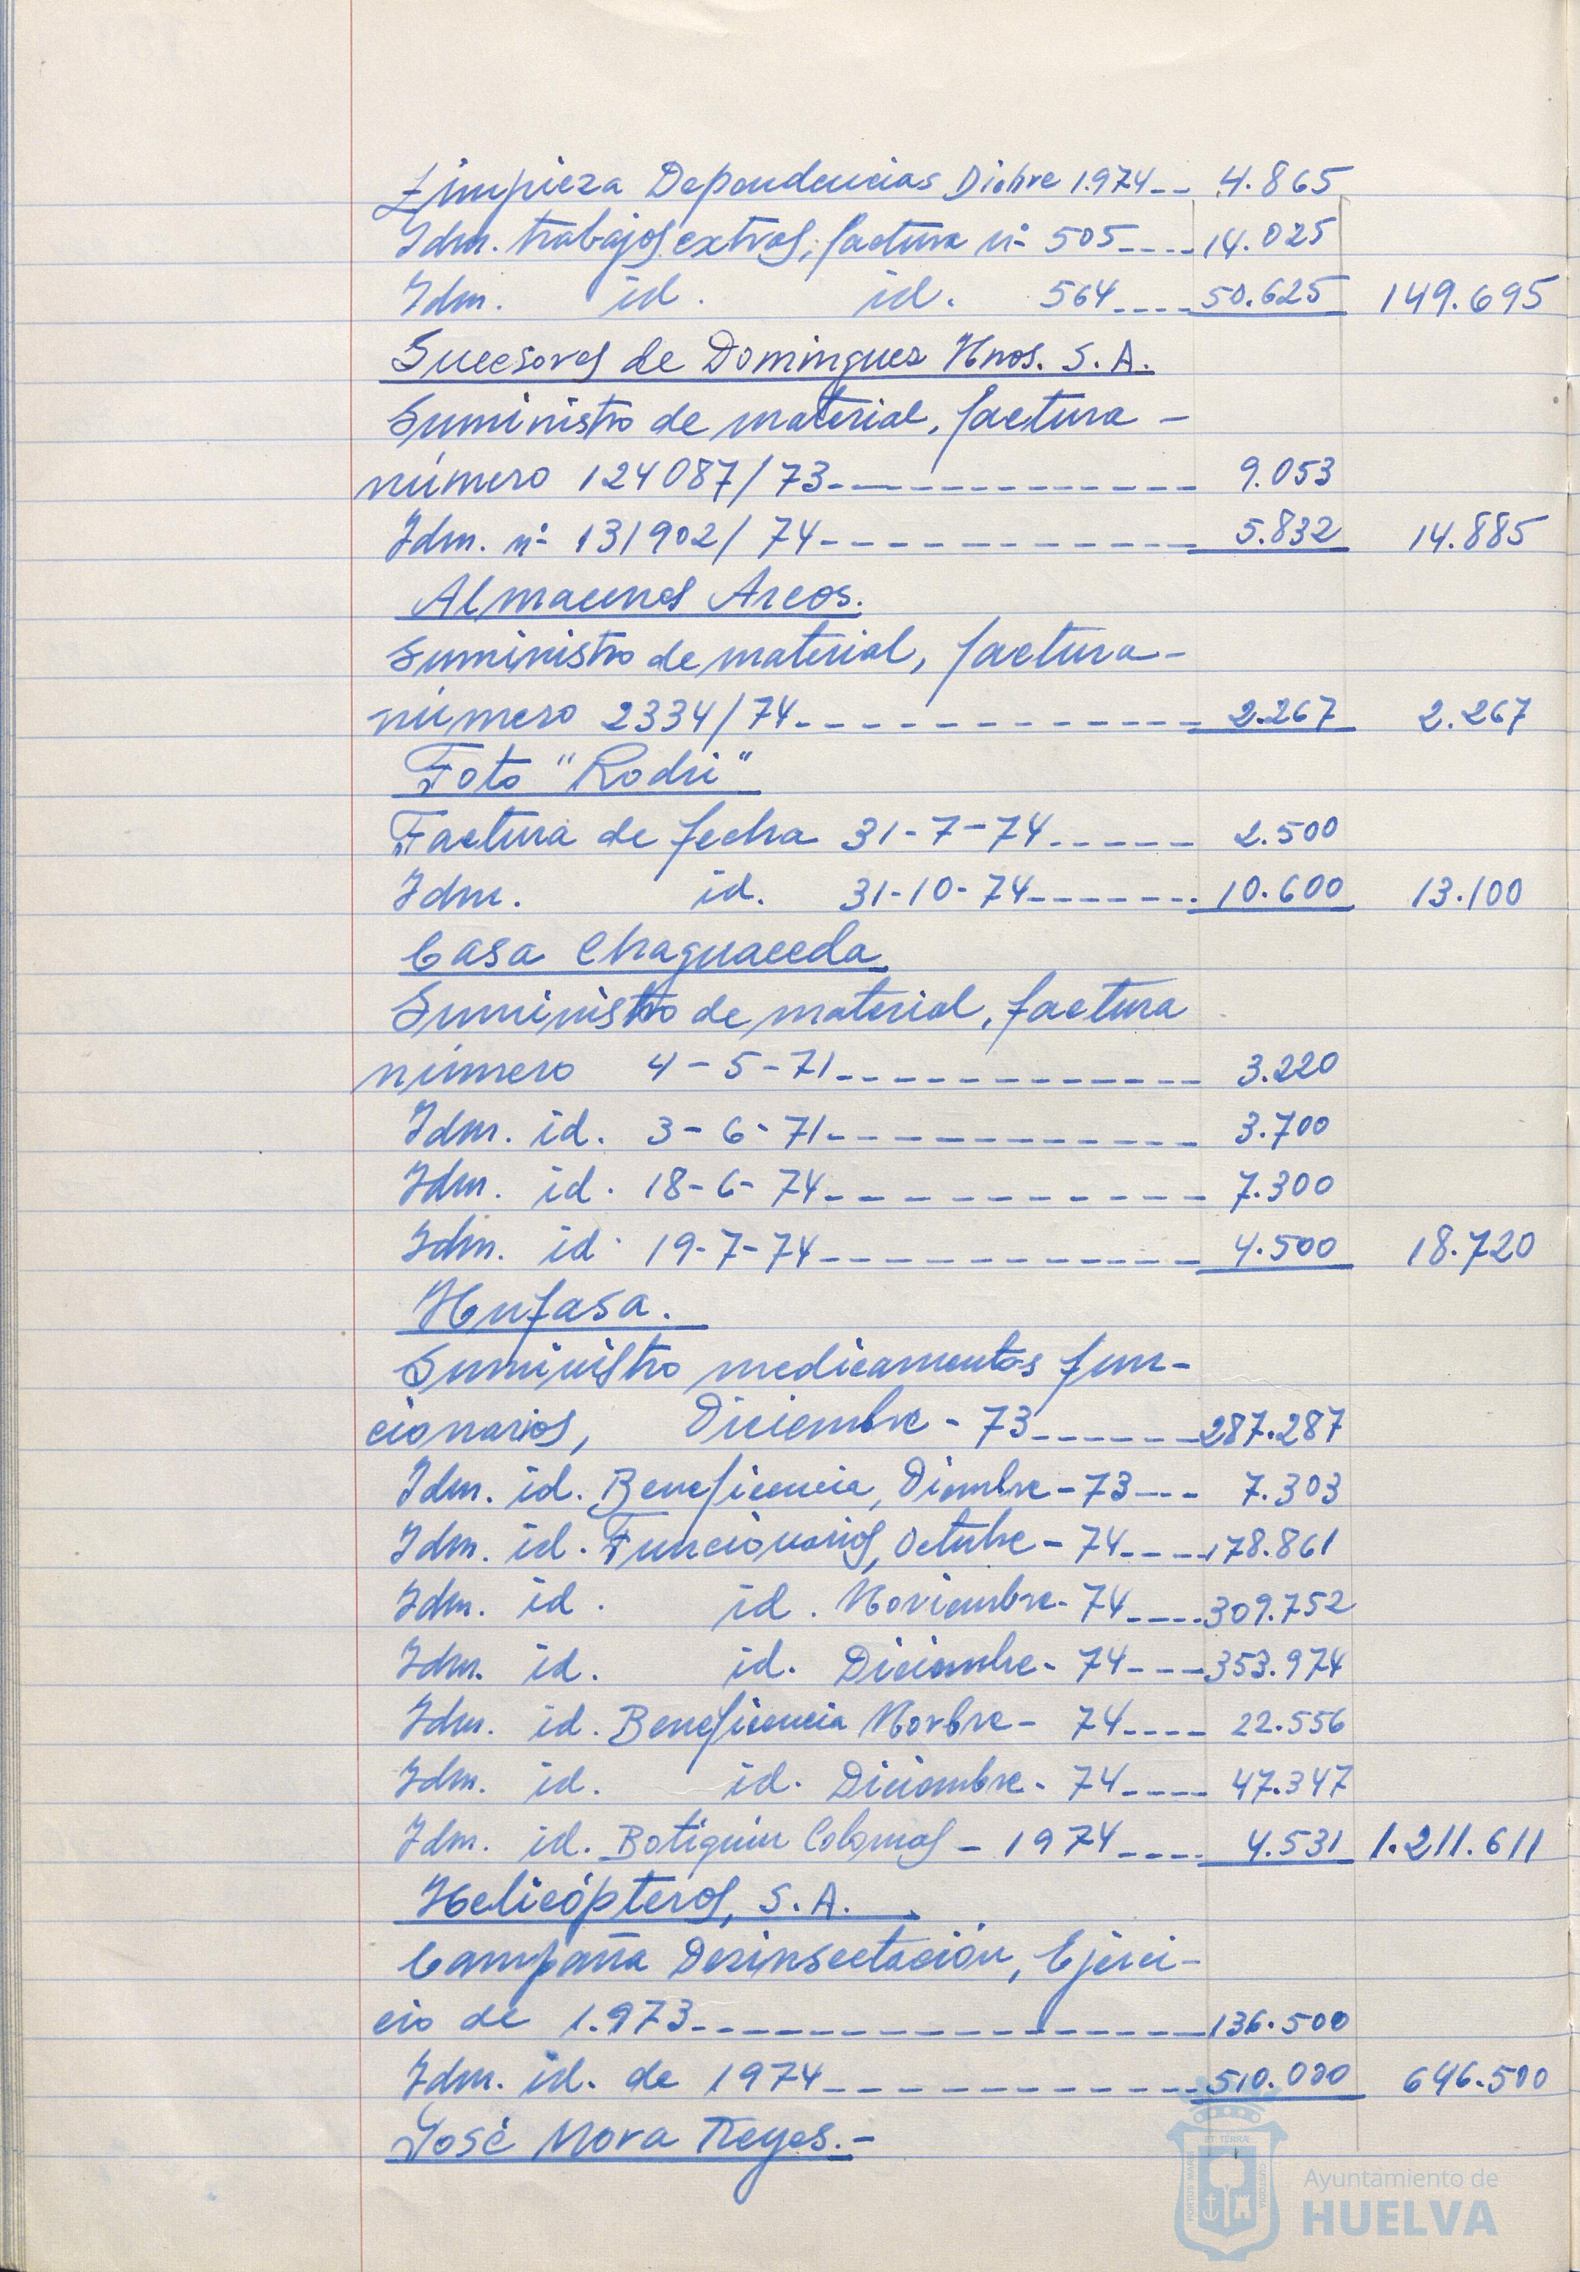 Limpieza Dependencias Dicbre 1.974-- 4.865
Idm. trabajos extras, factura nº 505---- 14.025
Idm. id. id. 564---- 50.625 149.695
Sucesores de Dominguez Hnos. S.A.
Suministro de material, factura -
número 124087/73------------- 9.053
Idm. nº 131902/74------------ 5.832 14.885
Almacenes Arcos.
Suministro de material, factura-
número 2334/74------------ 2.267 2.267
Foto "Rodri"
Factura de fecha 31-7-74----- 2.500
Idm. id. 31-10-74------- 10.600 13.100
Casa Chaguaceda
Suministro de material, factura
número 4-5-71------------ 3.220
Idm. id. 3-6-71------------ 3.700
Idm. id. 18-6-74----------- 7.300
Idm. id. 19-7-74----------- 4.500 18.720
Hufasa.
Suministro medicamentos fun-
cionarios, Diciembre-73------ 287.287
Idm. id. Beneficencia, Diembre-73--- 7.303
Idm. id. Funcionarios, Octubre-74---- 178.861
Idm. id. id. Noviembre-74---- 309.752
Idm. id. id. Diciembre-74--- 353.974
Idm. id. Beneficencia Novbre-74---- 22.556
Idm. id. id. Diciembre-74---- 47.347
Idm. id. Botiquin Colomas-1974---- 4.531 1.211.611
Helicópteros, S.A.
Campaña Desinsectación, Ejerci-
cio de 1.973----------------- 136.500
Idm. id. de 1974------------- 510.000 646.500
José Mora Reyes.-
PORTUS MARIS
ET TERRÆ
CUSTODIA
Ayuntamiento de
HUELVA